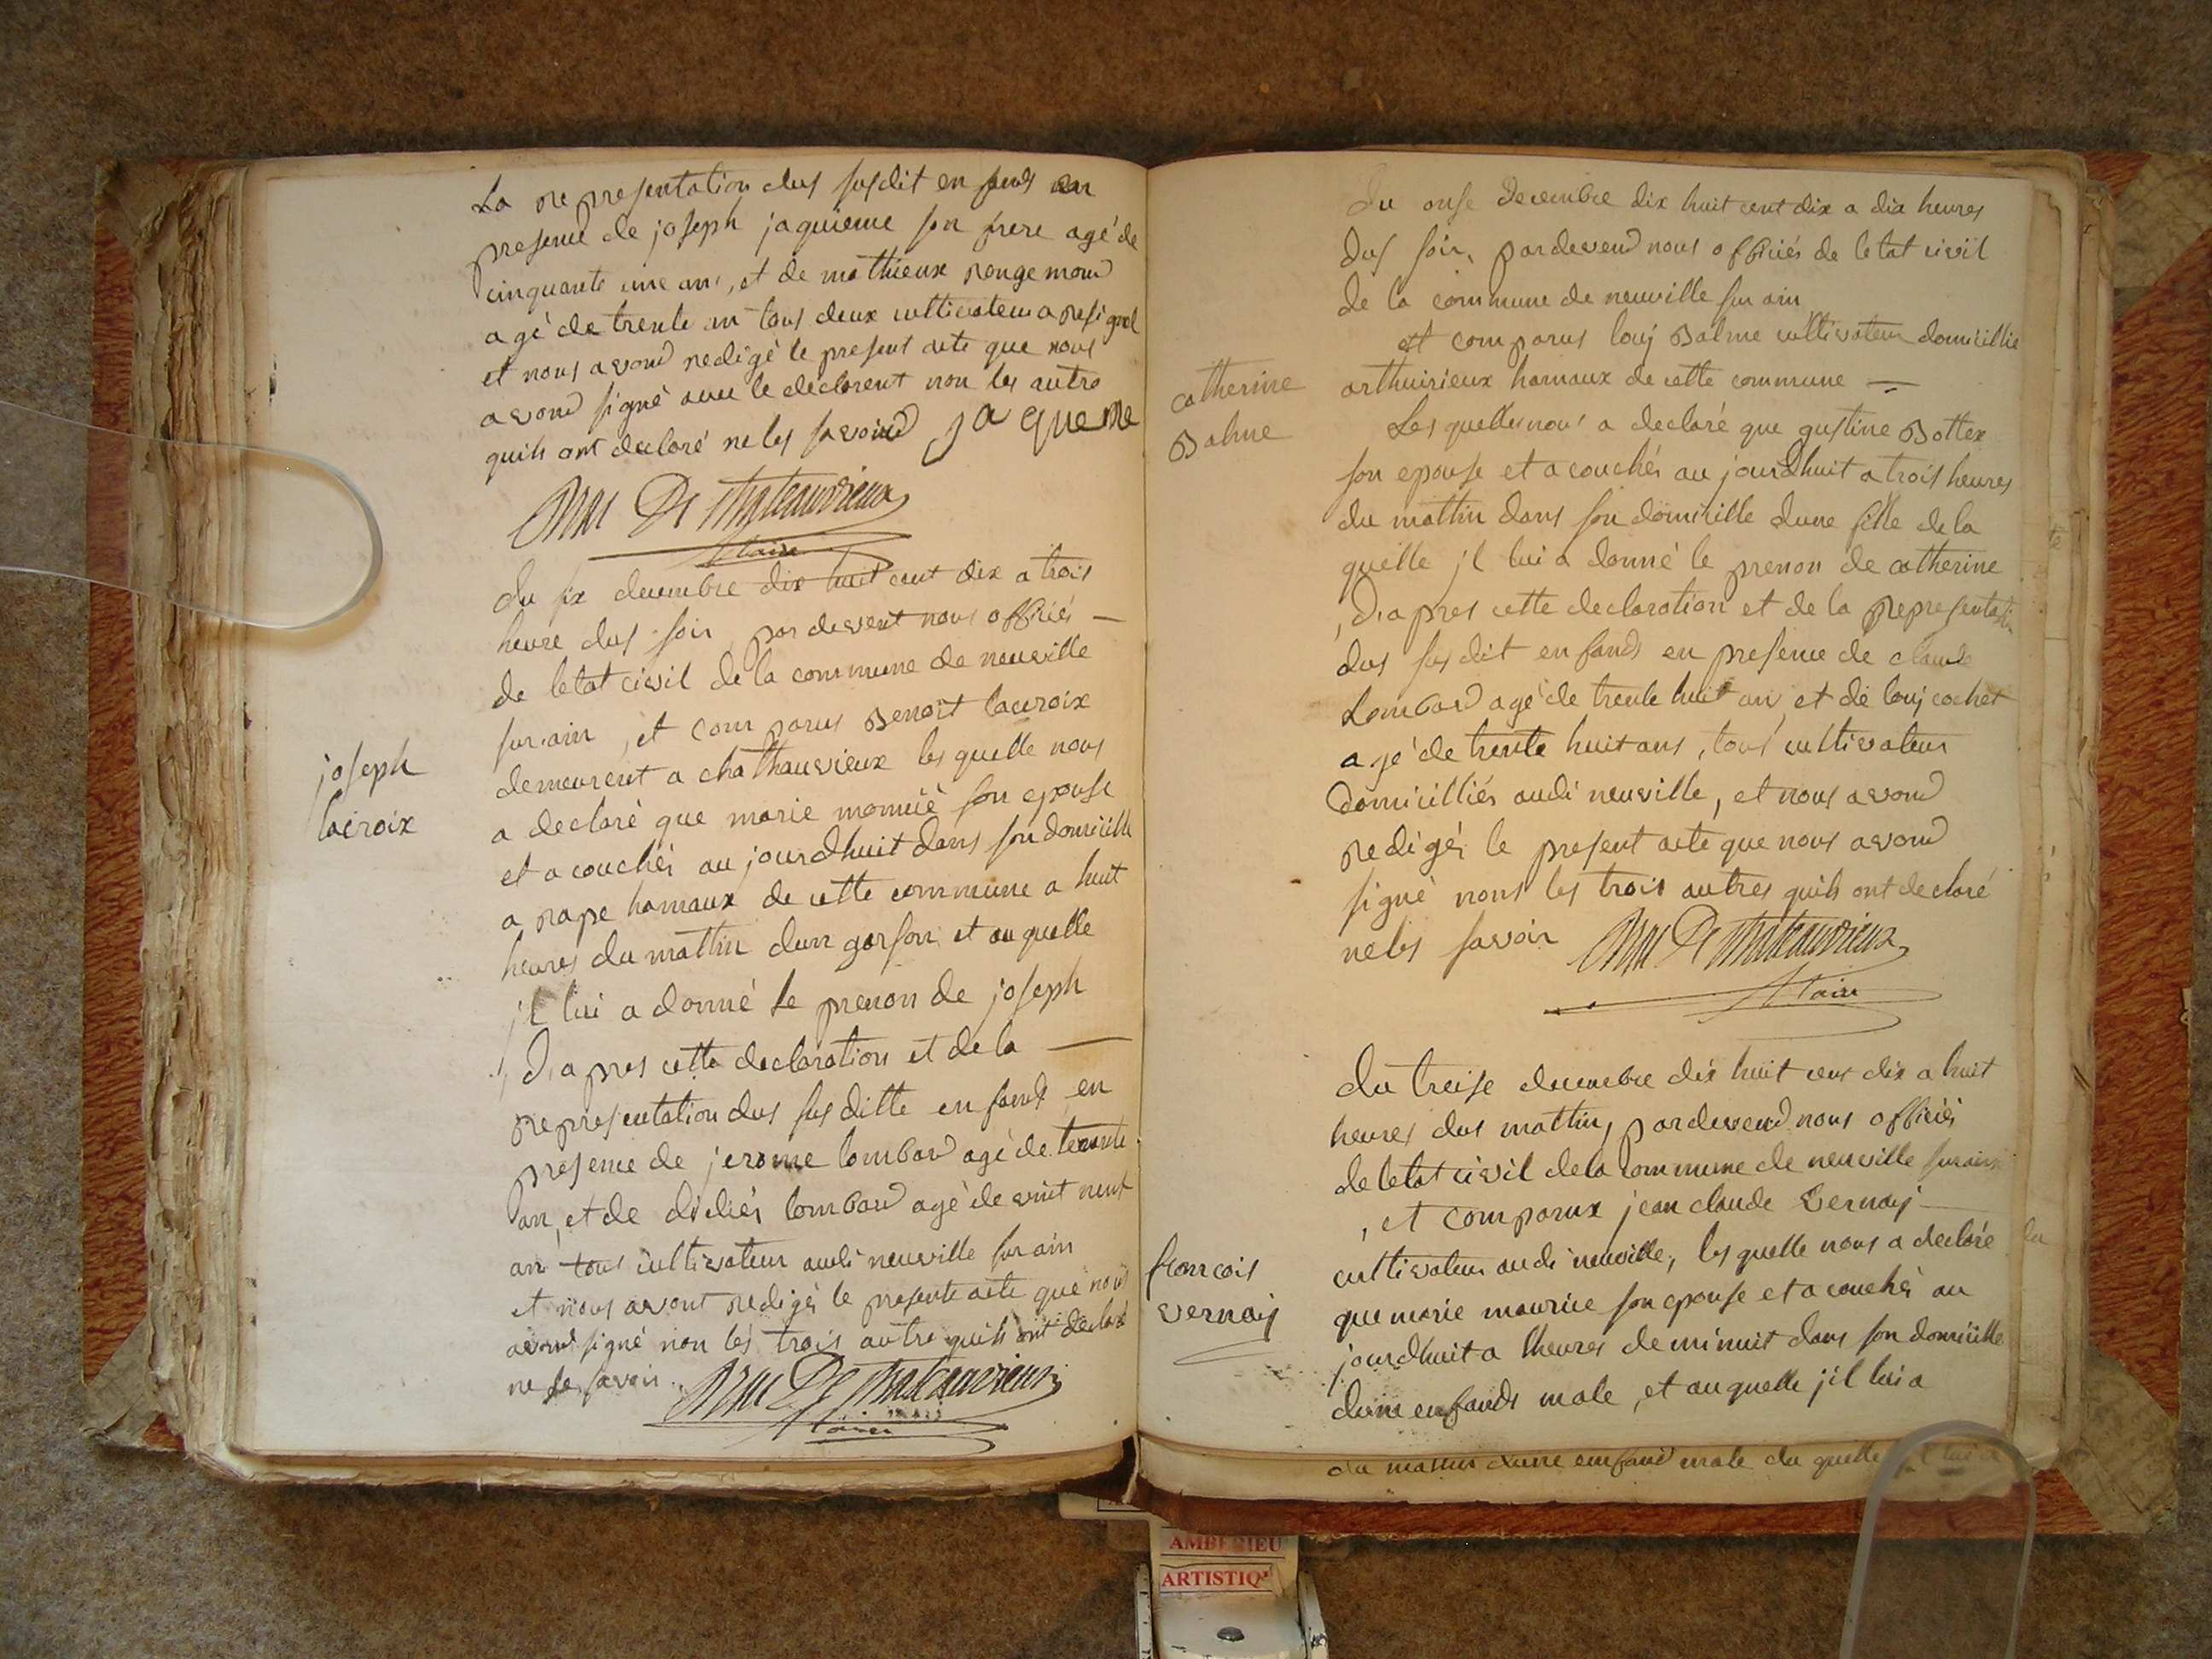 La representation dus susdit en fands en
presence de joseph jaquieme son frere agé de
cinquante une ans, et de mathieux rougemond
agé de trente an tous deux cultivateur a
et nous avond redigé le present acte que nous
avond signé avec le declarent non les autre
quils ont declaré ne les savoird jaqueme
De Chateauvieux
Maire
Du six decembre dix huit cent dix a trois
heure dus soir pardevent nous officiés —
de letat civil de la commune de neuville
sur ain, et comparus Benoit lacroix
demeurent a chathauvieux les quelle nous
joseph
lacroix
a declaré que marie son epouse
et a couchés au jourdhuit dans son domicille
a rape hamaux de cette commune a huit
heures du mattin dun garson et au quelle
jl lui a donné le prenon de joseph
, Dapres cette declaration et de la —
representation dus sus ditte en fands en
presence de jerome lombard agé de trente
an, et de didiés lombard agé de vint neuf
an tous cultivateur audi neuville sur ain
et nous avont redigés le presente acte que nous
avond signé non les trois autre quils ont declaré
ne les savoir. De Chateauvieux
Maire
Du onse decembre dix huit cent dix a dix heures
dus soir, pardevend nous officiés de letat civil
de la commune de neuville sur ain
et comparus louj Balme cultivateur domicillie
catherine
Balme
arthuirieux hamaux de cette commune —
Les quelle nous a declaré que gustine Bottex
son epouse et a couchés au jourdhuit a trois heures
du mattin dans son domicille dune fille de la
quelle jl lui a donné le prenon de catherine
, Dapres cette declaration et de la representation
dus sus dit en fands en presence de claude
Lombard agé de trente huit an et de louj cochet
agé de trente huit ans, tous cultivateur
domicilliés audi neuville, et nous avond
redigés le present acte que nous avond
signé nons les trois autres quils ont declaré
ne les savoir De Chateauvieux
Maire
du treise decembre dix huit cens dix a huit
heures dus mattin, pardevend nous officiés
de letat civil de la commune de neuville sur ain
, et comparux jean claude Vernaij —
francois
vernaij
cultivateur audi neuville, les quelle nous a declaré
que marie maurice son epouse et a couchés au
jourdhuit a lheures de minuit dans son domicille
dunne enfands male, et au quelle jil lui a
du mattin dunne emfand male du quelle jl lui a
AMBERIEU
ARTISTIQ